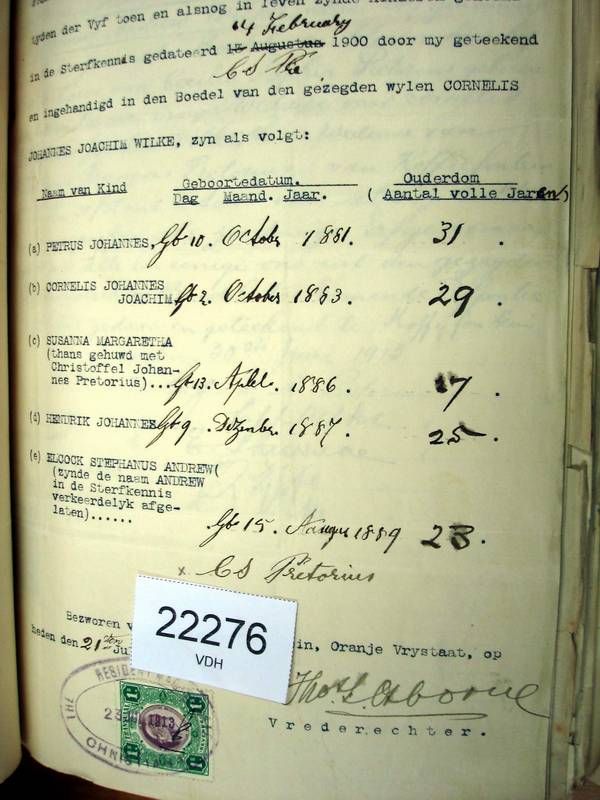 tyden der Vyf toen en alsnog in leven zynde
14 February
in de Sterfkennis gedateerd 13 Augustus 1900 door my geteekend
C S Pre
en ingehandigd in den Boedel van den gezegden wylen CORNELIS
JOHANNES JOACHIM WILKE, zyn als volgt:
Naam van Kind Geboortedatum. Ouderdom
Dag Maand. Jaar. ( Aantal volle Jaren)
(a) PETRUS JOHANNES, Gb 10. October 1881. 31.
(b) CORNELIS JOHANNES
JOACHIM Gb 2. October 1883. 29.
(c) SUSANNA MARGARETHA
(thans gehuwd met
Christoffel Johan-
nes Pretorius)... Gb 13. April. 1886. 27
(d) HENDRIK JOHANNES Gb 9. Dezember 1887. 25.
(e) ELCOCK STEPHANUS ANDREW(
(zynde de naam ANDREW
in de Sterfkennis
verkeerdelyk afge-
laten)......
Gb 15. 1889 23.
x C S Pretorius
Bezworen
in, Oranje Vrystaat, op
heden den 21sten
22276
VDH
Thos L Osborne
Vrederechter.
THE RESIDENT
1913